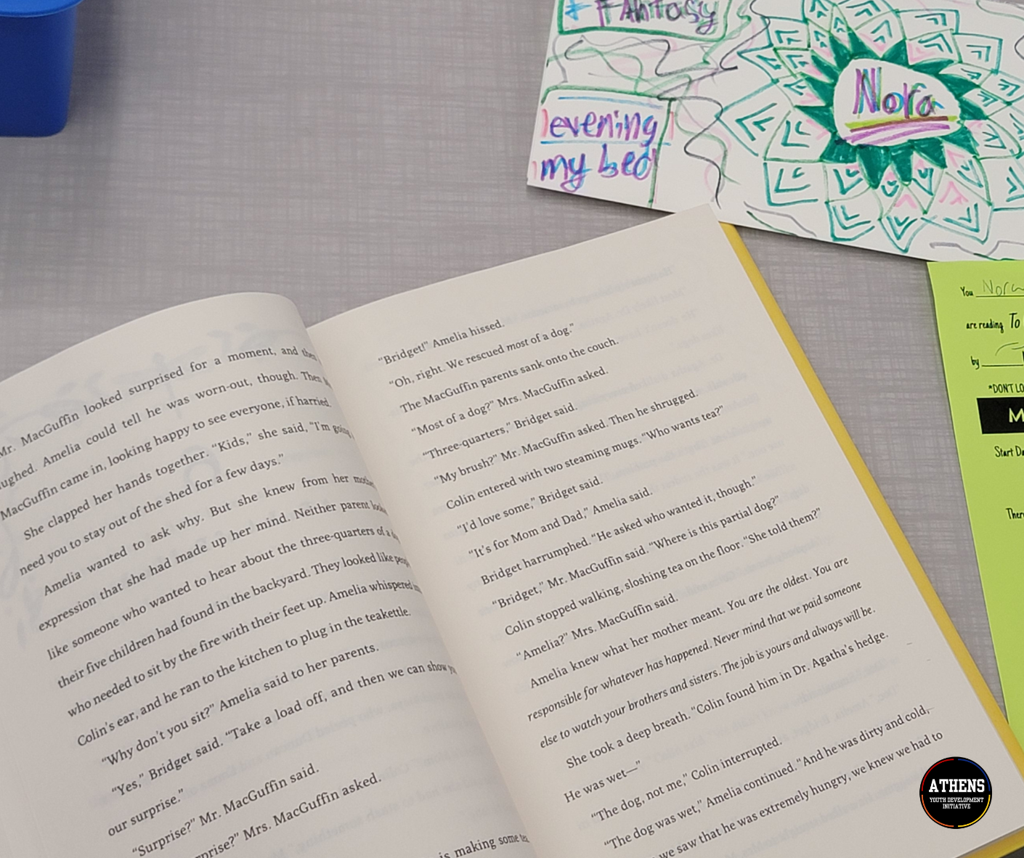 * FANtasy
evening
my bed
Nora
You Nora
are reading To
by
*DON'T LO
M
Start Da
Ther
Mr. MacGuffin looked surprised for a moment, and then
ughed. Amelia could tell he was worn-out, though. Then
MacGuffin came in, looking happy to see everyone, if harried.
She clapped her hands together. “Kids,” she said, “I'm going
need you to stay out of the shed for a few days.”
Amelia wanted to ask why. But she knew from her mother
expression that she had made up her mind. Neither parent looked
like someone who wanted to hear about the three-quarters of a
their five children had found in the backyard. They looked like
who needed to sit by the fire with their feet up. Amelia whispered
Colin's ear, and he ran to the kitchen to plug in the teakettle.
“Why don't you sit?” Amelia said to her parents.
“Yes,” Bridget said. “Take a load off, and then we can show
our surprise.”
“Surprise?” Mr. MacGuffin said.
prise?” Mrs. MacGuffin asked.
is making some
“Bridget!” Amelia hissed.
“Oh, right. We rescued most of a dog.”
The MacGuffin parents sank onto the couch.
“Most of a dog?” Mrs. MacGuffin asked.
“Three-quarters,” Bridget said.
“My brush?” Mr. MacGuffin asked. Then he shrugged.
Colin entered with two steaming mugs. “Who wants tea?”
“I'd love some,” Bridget said.
“It's for Mom and Dad,” Amelia said.
Bridget harrumphed. “He asked who wanted it, though.”
“Bridget,” Mr. MacGuffin said. “Where is this partial dog?”
Colin stopped walking, sloshing tea on the floor. “She told them?”
“Amelia?” Mrs. MacGuffin said.
Amelia knew what her mother meant. You are the oldest. You are
responsible for whatever has happened. Never mind that we paid someone
else to watch your brothers and sisters. The job is yours and always will be.
She took a deep breath. “Colin found him in Dr. Agatha's hedge.
He was wet—”
“The dog, not me,” Colin interrupted.
“The dog was wet,” Amelia continued. “And he was dirty and cold,
we saw that he was extremely hungry, we knew we had to
ATHENS
YOUTH DEVELOPMENT
INITIATIVE